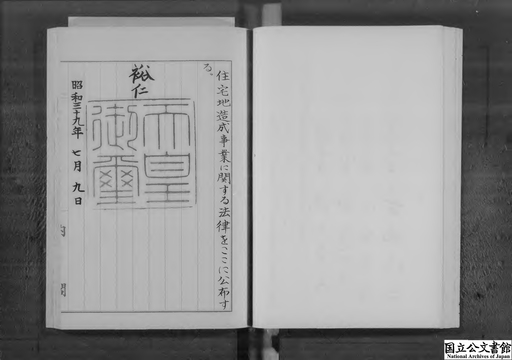 住宅地造成事業に関する法律をここに公布す
る。
裕仁
天皇
御璽
昭和三十九年七月九日
内閣
国立公文書館
National Archives of Japan